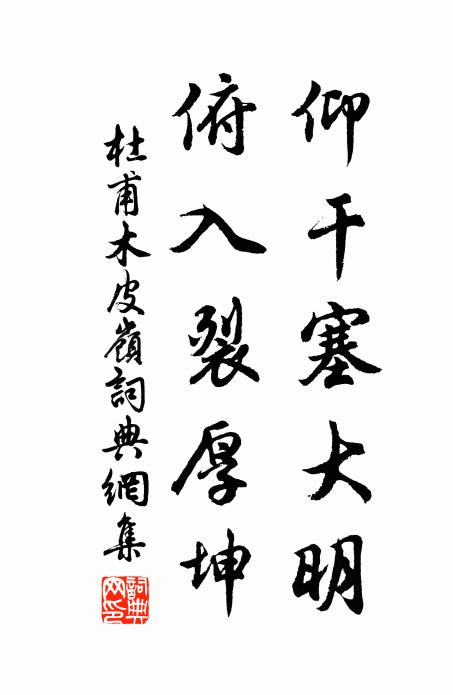 仰干塞大明
俯入裂厚坤
杜甫木皮嶺詞典網集
詞典網印